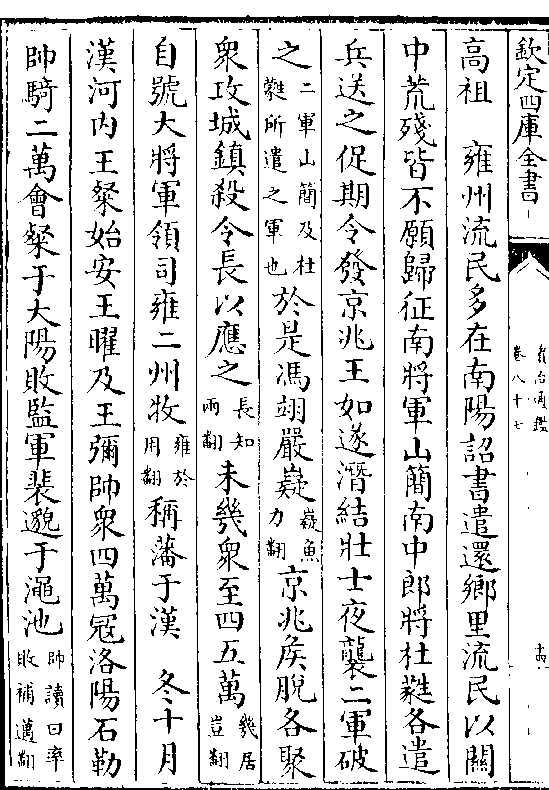 欽定四庫全書
資治通鑑
卷八十七
高祖　雍州流民多在南陽詔書遣還鄉里流民以關
中荒殘皆不願歸征南將軍山簡南中郎將杜蕤各遣
兵送之促期令發京兆王如遂潛結壯士夜襲二軍破
之二軍山簡及杜蕤所遣之軍也於是馮翊嚴嶷嶷魚力翻京兆侯脫各聚
衆攻城鎮殺令長以應之長知兩翻未幾衆至四五萬幾居豈翻
自號大將軍領司雍二州牧雍於用翻稱藩于漢　冬十月
漢河内王粲始安王曜及王彌帥衆四萬冦洛陽石勒
帥騎二萬會粲于大陽敗監軍裴邈于澠池帥讀曰率敗補邁翻